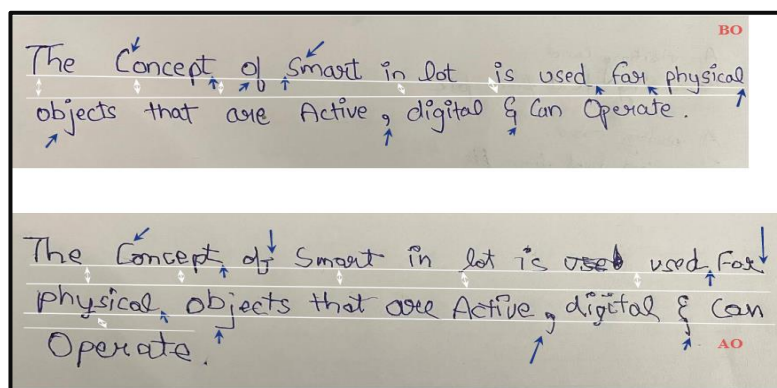 BO
The Concept of Smart in Iot is used for physical
objects that are Active, digital & Can Operate.
The Concept of Smart in Iot is used used For
physical, objects that are Active, digital & Can
Operate.
AO